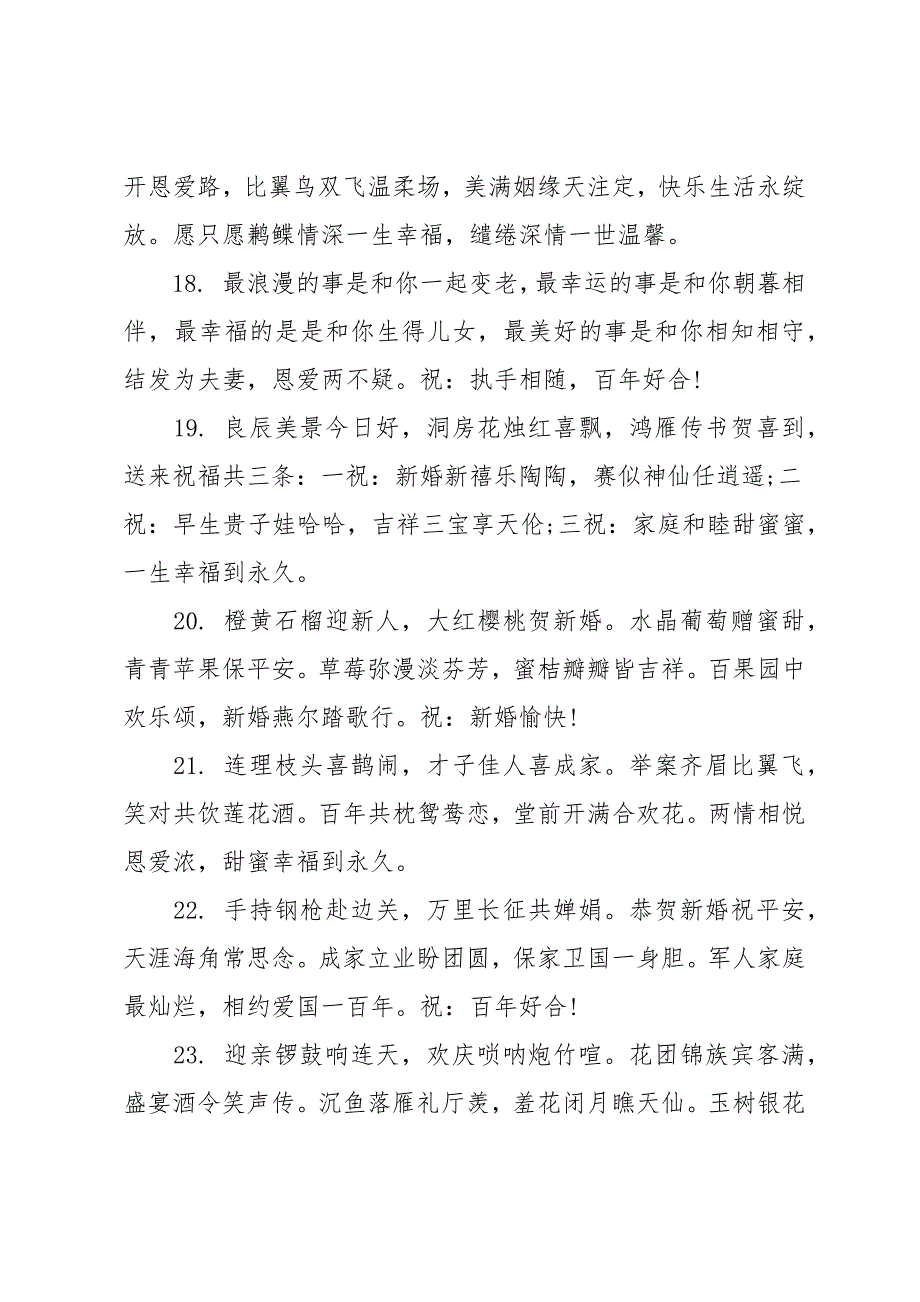 开恩爱路，比翼鸟双飞温柔场，美满姻缘天注定，快乐生活永绽
放。愿只愿鹣鲽情深一生幸福，缱绻深情一世温馨。
18. 最浪漫的事是和你一起变老，最幸运的事是和你朝暮相
伴，最幸福的是是和你生得儿女，最美好的事是和你相知相守，
结发为夫妻，恩爱两不疑。祝：执手相随，百年好合!
19. 良辰美景今日好，洞房花烛红喜飘，鸿雁传书贺喜到，
送来祝福共三条：一祝：新婚新禧乐陶陶，赛似神仙任逍遥;二
祝：早生贵子娃哈哈，吉祥三宝享天伦;三祝：家庭和睦甜蜜蜜，
一生幸福到永久。
20. 橙黄石榴迎新人，大红樱桃贺新婚。水晶葡萄赠蜜甜，
青青苹果保平安。草莓弥漫淡芬芳，蜜桔瓣瓣皆吉祥。百果园中
欢乐颂，新婚燕尔踏歌行。祝：新婚愉快!
21. 连理枝头喜鹊闹，才子佳人喜成家。举案齐眉比翼飞，
笑对共饮莲花酒。百年共枕鸳鸯恋，堂前开满合欢花。两情相悦
恩爱浓，甜蜜幸福到永久。
22. 手持钢枪赴边关，万里长征共婵娟。恭贺新婚祝平安，
天涯海角常思念。成家立业盼团圆，保家卫国一身胆。军人家庭
最灿烂，相约爱国一百年。祝：百年好合!
23. 迎亲锣鼓响连天，欢庆唢呐炮竹喧。花团锦族宾客满，
盛宴酒令笑声传。沉鱼落雁礼厅羡，羞花闭月瞧天仙。玉树银花